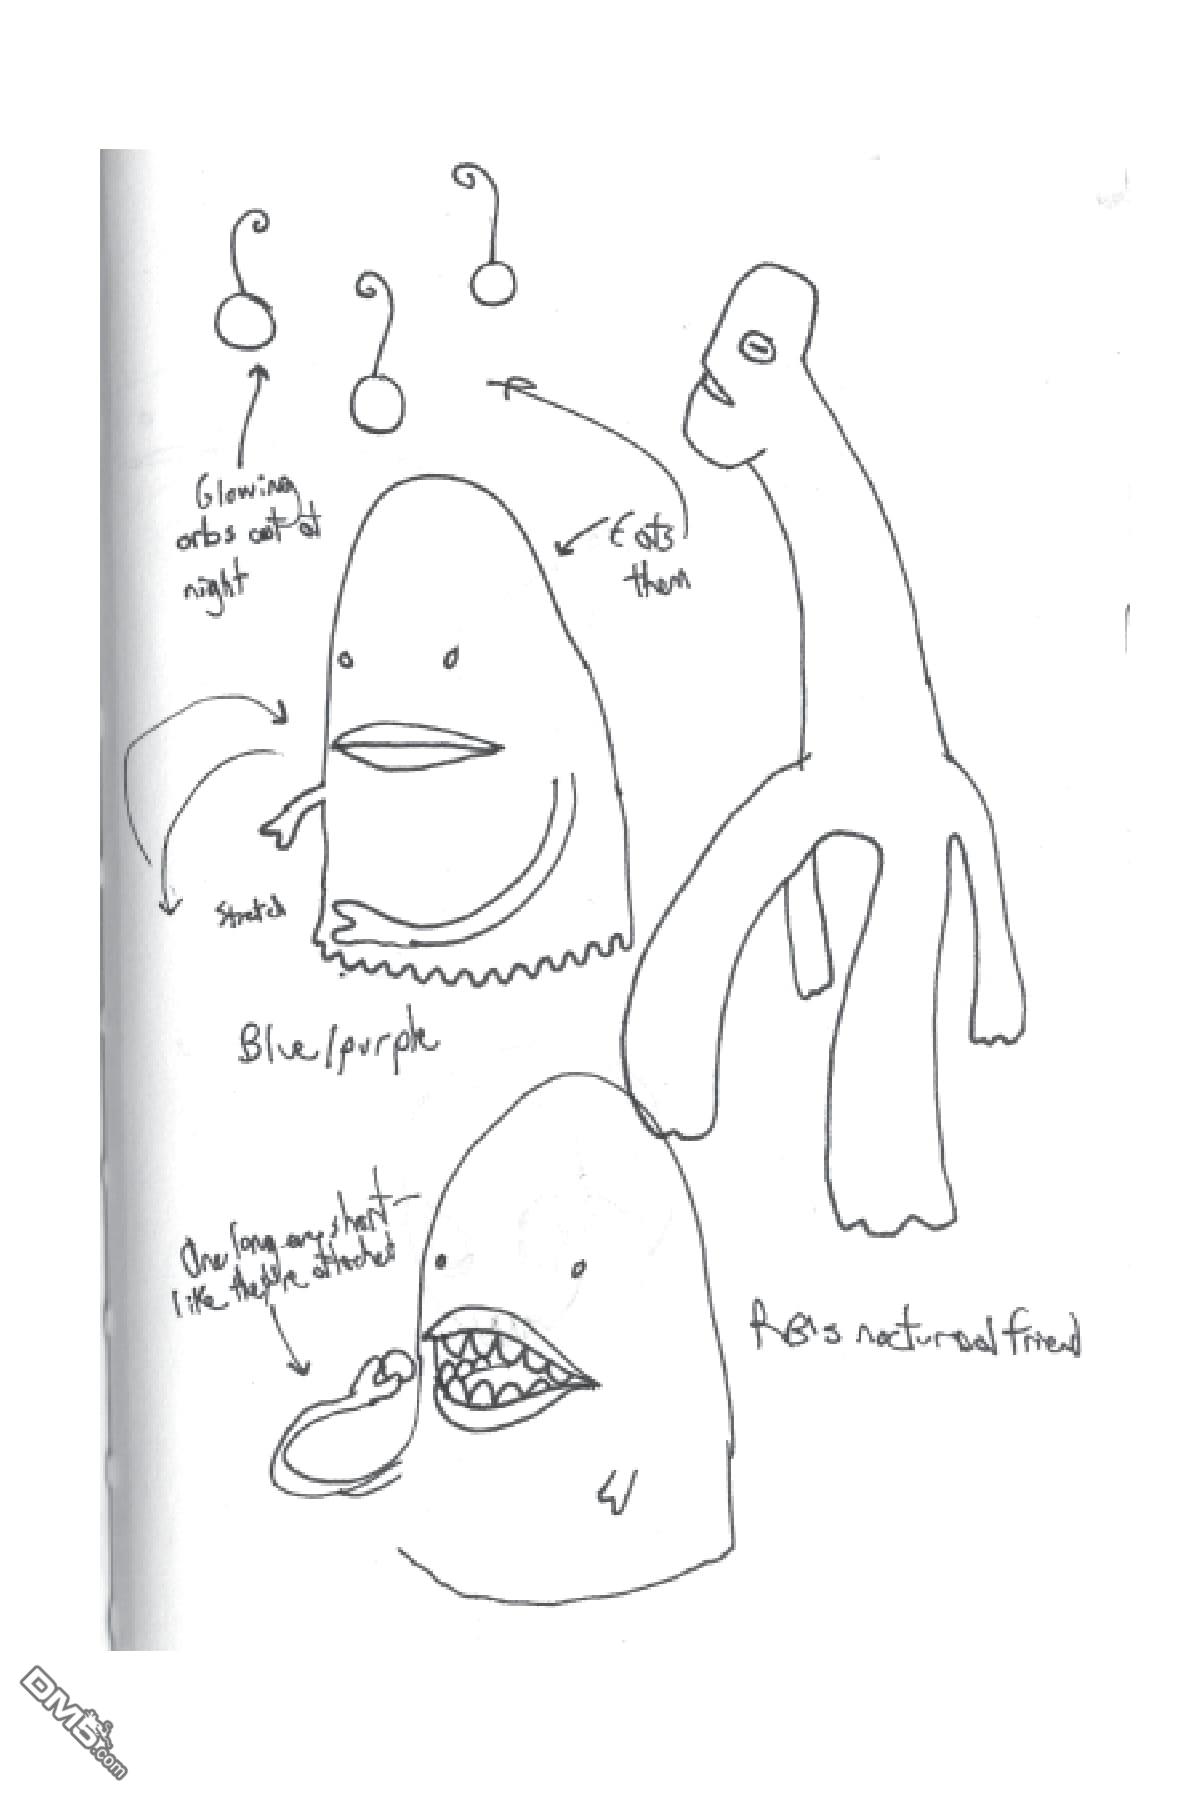 Glowing
orbs out at
night
Eats
them
Stretch
Blue/purple
One long one short
like they're attached
RB's nocturnal friend
DMB.com